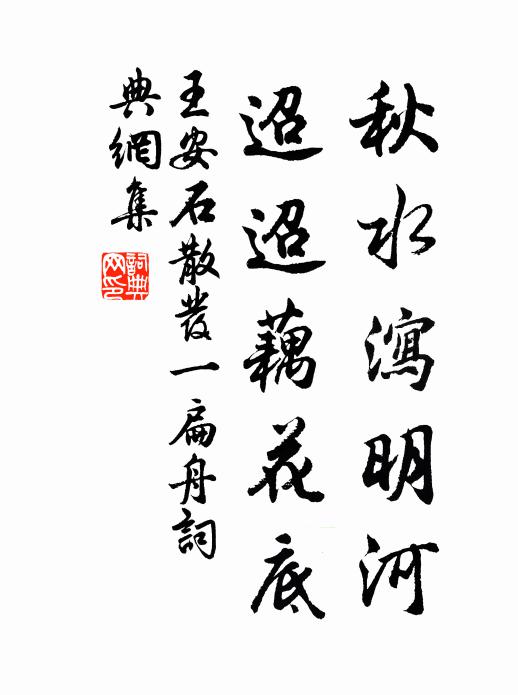 秋水瀉明河
迢迢藕花底
王安石散發一扁舟詞
典網集
詞典網印